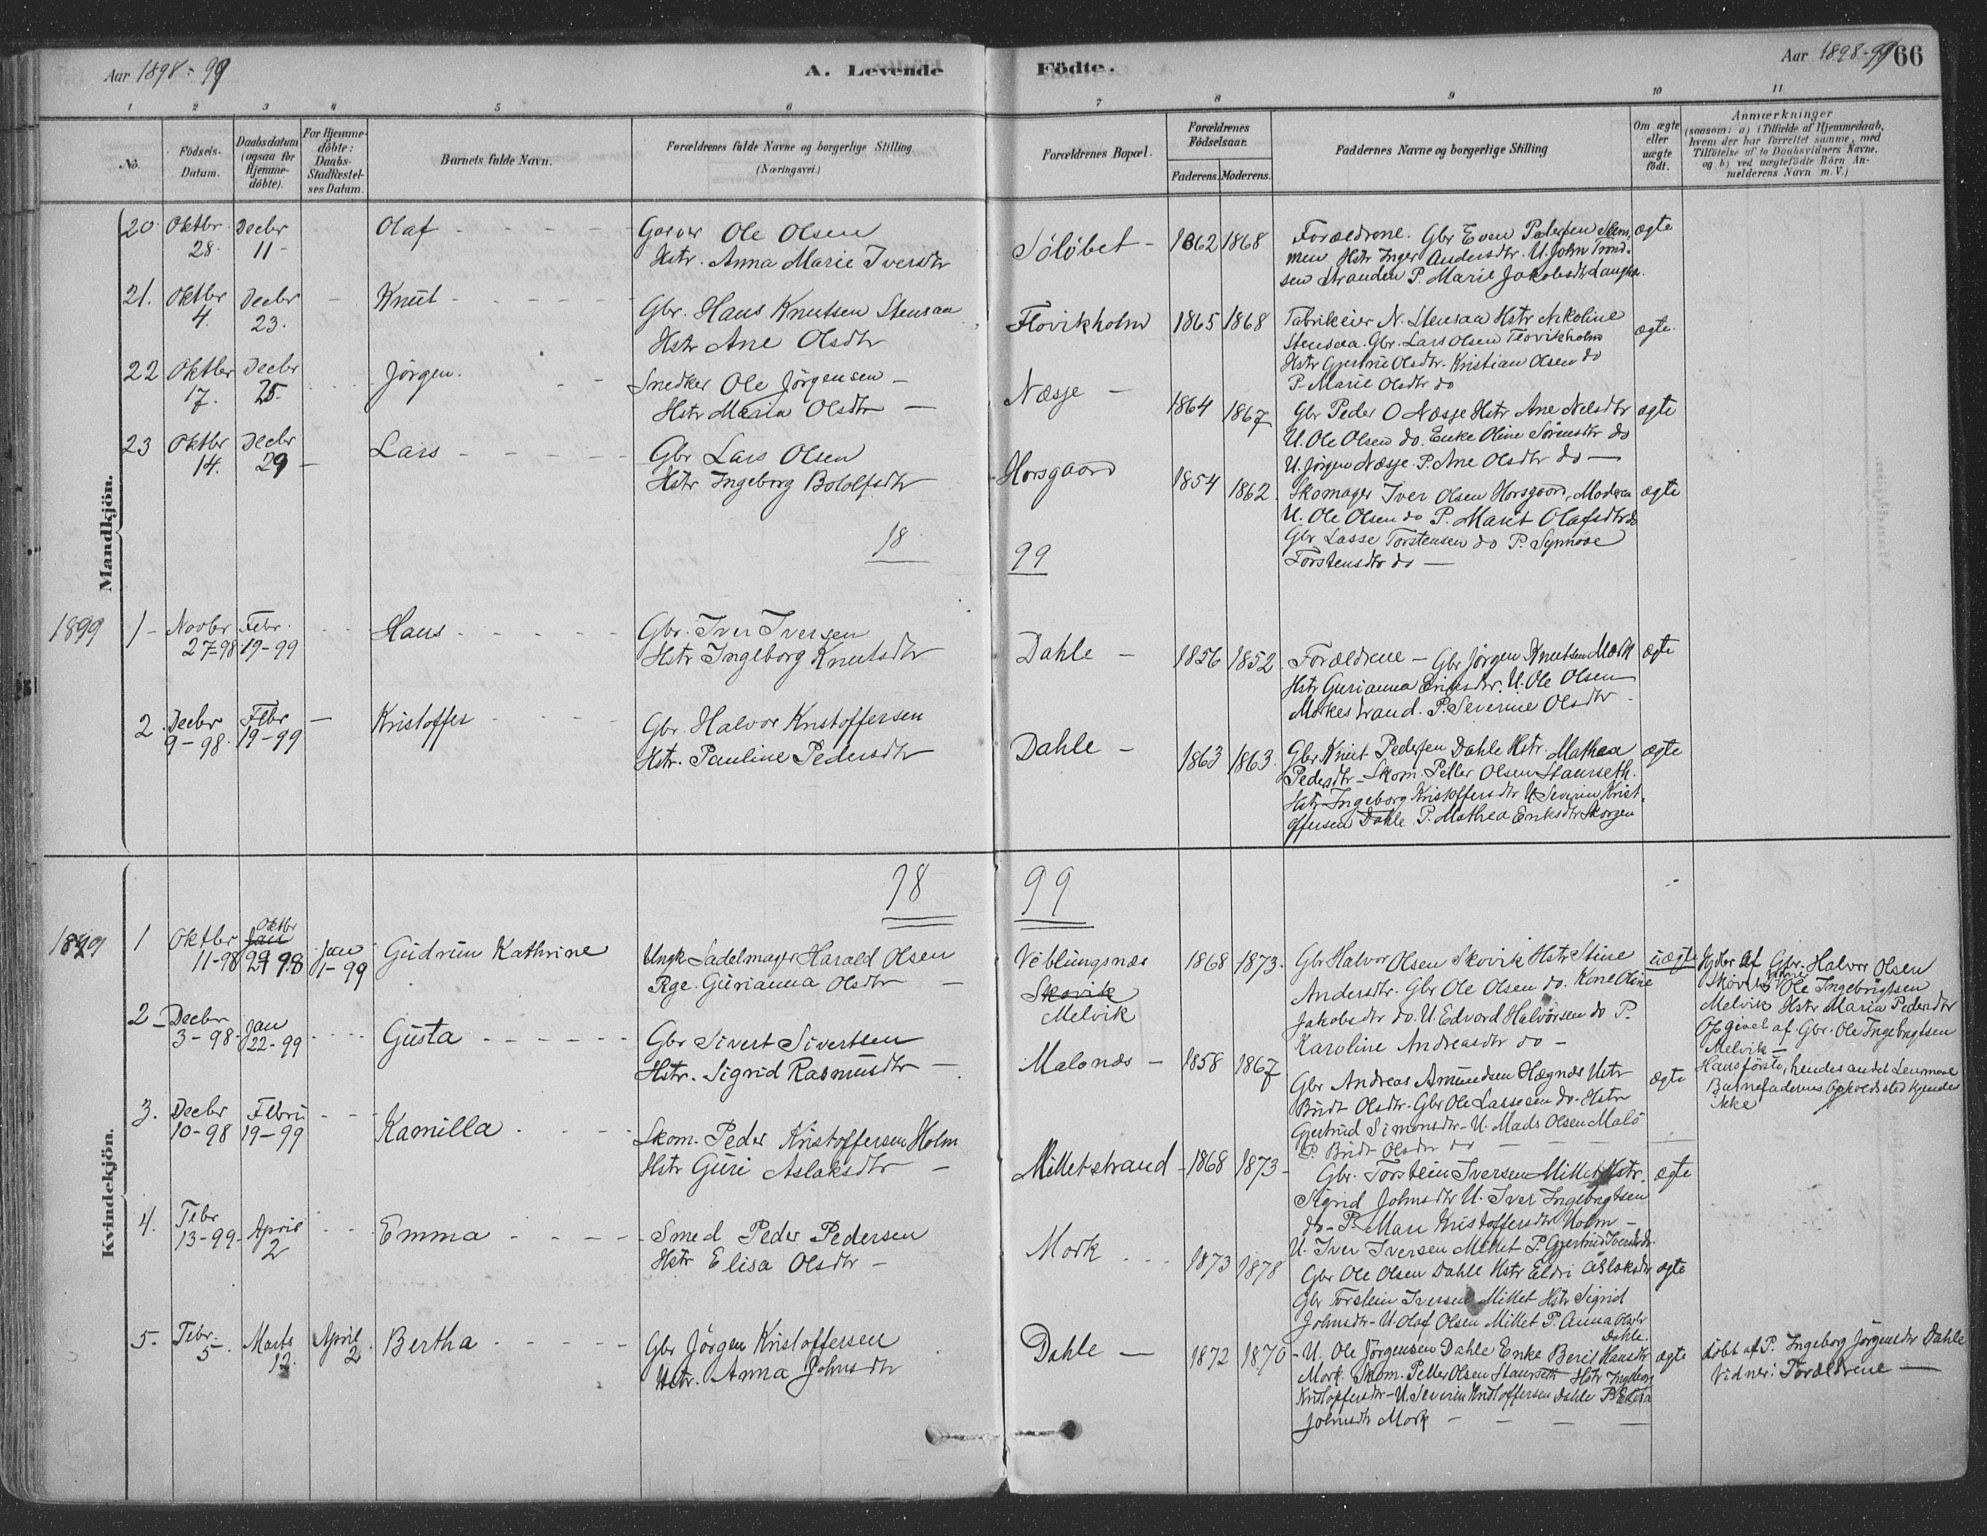 Aar 1898-99
A. Levende
Födte.
Aar 1898-99
66
1 2 3 4 5 6 7 8 9 10 11
No.
Födsels-Datum.
Daabsdatum (ogsaa for Hjemmedöbte).
For Hjemmedöbte: Daabs-Stadfæstelses Datum.
Barnets fulde Navn.
Forældrenes fulde Navne og borgerlige Stilling (Næringsvei.)
Forældrenes Bopæl.
Forældrenes Födselsaar.
Faderens. Moderens.
Faddernes Navne og borgerlige Stilling
Om ægte eller uægte födt.
Anmærkninger
(saasom: a) i Tilfælde af Hjemmedaab, hvem der har forrettet samme, med Tilföielse af to Daabsvidners Navne, og b) ved uægtefödte Börn Anmelderens Navn m. V.)
Mandkjön.
20 Oktbr 28. Decbr 11 - Olaf
Garver Ole Olsen
Hstr. Anna Marie Iversdtr
Söløbet - 1862 1868
Forældrene. Gbr Even Pedersen Slem-
men Hstr Inger Andersdtr. U. John Trond-
sen Stranden P. Marie Jakobsdtr
ægte
21. Oktbr 4. Decbr 23. - Knut
Gbr. Hans Knutsen Stensaa
Hstr Ane Olsdtr
Flovikholm 1865 1868
Fabrikeier N. Stensaa Hstr Nikoline
Stensaa. Gbr. Lars Olsen Flovikholm
Hstr Gjertrud Olsdtr. Kristian Olsen do
P. Marie Olsdtr do
ægte.
22 Oktbr 17. Decbr 25. Jørgen.
Snedker Ole Jørgensen -
Hstr Maria Olsdtr -
Næsje - 1864 1867
Gbr Peder O Næsje Hstr Ane Nilsdtr
U. Ole Olsen do. Enke Oline Sørensdtr do
U. Jørgen Næsje. P. Ane Olsdtr do -
ægte
23 Oktbr 14. Decbr 29 - Lars
Gbr Lars Olsen
Hstr Ingeborg Bololfsdtr
Horsgaard 1854 1862.
Skomager Iver Olsen Horsgaard, Moderen
U. Ole Olsen do P. Marit Olafsdtr do
Gbr Lasse Torstensen do P. Synnøve
Torstensdtr do -
ægte
18 99
1899
1 - Novbr 27-98 Febr. 19-99 Hans
Gbr. Iver Iversen
Hstr Ingeborg Knutsdtr
Dahle - 1856 1852
Forældrene - Gbr Jørgen Knutsen Mork
Hstr Gurianna Eriksdtr. U. Ole Olsen
Morkestrand. P. Severine Olsdtr
ægte
2. Decbr 9-98. Febr 19-99 - Kristoffer
Gbr. Halvor Kristoffersen
Hstr. Pauline Pedersdtr
Dahle - 1863 1863.
Gbr Knut Pedersen Dahle Hstr. Mathea
Pedersdtr - Skom. Petter Olsen Staurseth.
Hstr Ingeborg Kristoffersdtr U. Severin Krist-
offersen Dahle. P. Mathea Eriksdtr Skorgen
ægte
98 99
Kvindekjön.
1899
1 Oktbr 11-98 Oktbr 29 98 Jan 1-99 Gudrun Kathrine
Ungk Sadelmager Harald Olsen
Pge. Gurianna Olsdtr -
Veblungsnæs
Skovik
Melvik
1868 1873.
Gbr Halvor Olsen Skovik Hstr Stine
Andersdtr. Gbr Ole Olsen do. Kone Oline
Jakobsdtr do. U. Edvard Halvorsen do P.
Karoline Andreasdtr do -
uægte
af Gbr. Halvor Olsen
Skovik. Ole Ingebrigtsen
Melvik Hstr Maria Pedersdtr
Opgivet af Gbr. Ole Ingebrigtsen
Melvik -
Hans første, hendes andet Leiermaal
Barnefaderens Opholdssted kjendes
ikke
2 - Decbr 3-98 Jan 22-99 Gusta
Gbr Sivert Sivertsen
Hstr. Sigrid Rasmusdtr -
Malonæs - 1858 1867
Gbr Andreas Amundsen Hægnæs Hstr
Bridt Olsdtr. Gbr Ole Lassesen do. Hstr
Gjertrud Simonsdtr - U. Mads Olsen Malö
P. Bridt Olsdtr do
ægte
3. Decbr 10-98 Febru 19-99 Kamilla
Skom. Peder Kristoffersen Holm
Hstr Guri Aslaksdtr -
Milletstrand - 1868 1873 -
Gbr. Torstein Iversen Millet Hstr.
Sigrid Johnsdtr U. Iver Ingebrigtsen
do - P. Mari Kristoffersdtr Holm -
U. Iver Iversen Millet P. Gjertrud Iversdtr do.
ægte
4. Febr 13-99 April 2 Emma
Smed Peder Pedersen
Hstr Elisa Olsdtr -
Mork 1873 1878
Gbr Ole Olsen Dahle Hstr Eldri Aslaksdtr
Gbr Torstein Iversen Millet Hstr Sigrid
Johnsdtr - U. Olaf Olsen Millet P. Anna Olsdtr
Dahle.
ægte
5. Febr. 5. Marts 12. April 2 Bertha
Gbr Jörgen Kristoffersen
Hstr. Anna Johnsdtr
Dahle - 1872 1870
- U. Ole Jörgensen Dahle Enke Berit Hansdtr
Mork. Skom. Petter Olsen Staurseth Hstr Ingeborg
Kristoffersdtr - U. Severin Kristoffersen Dahle P.
Johnsdtr Mork - - - -
ægte
Döbt af P. Ingeborg Jörgensdtr Dahle
Vidner: Forældrene -